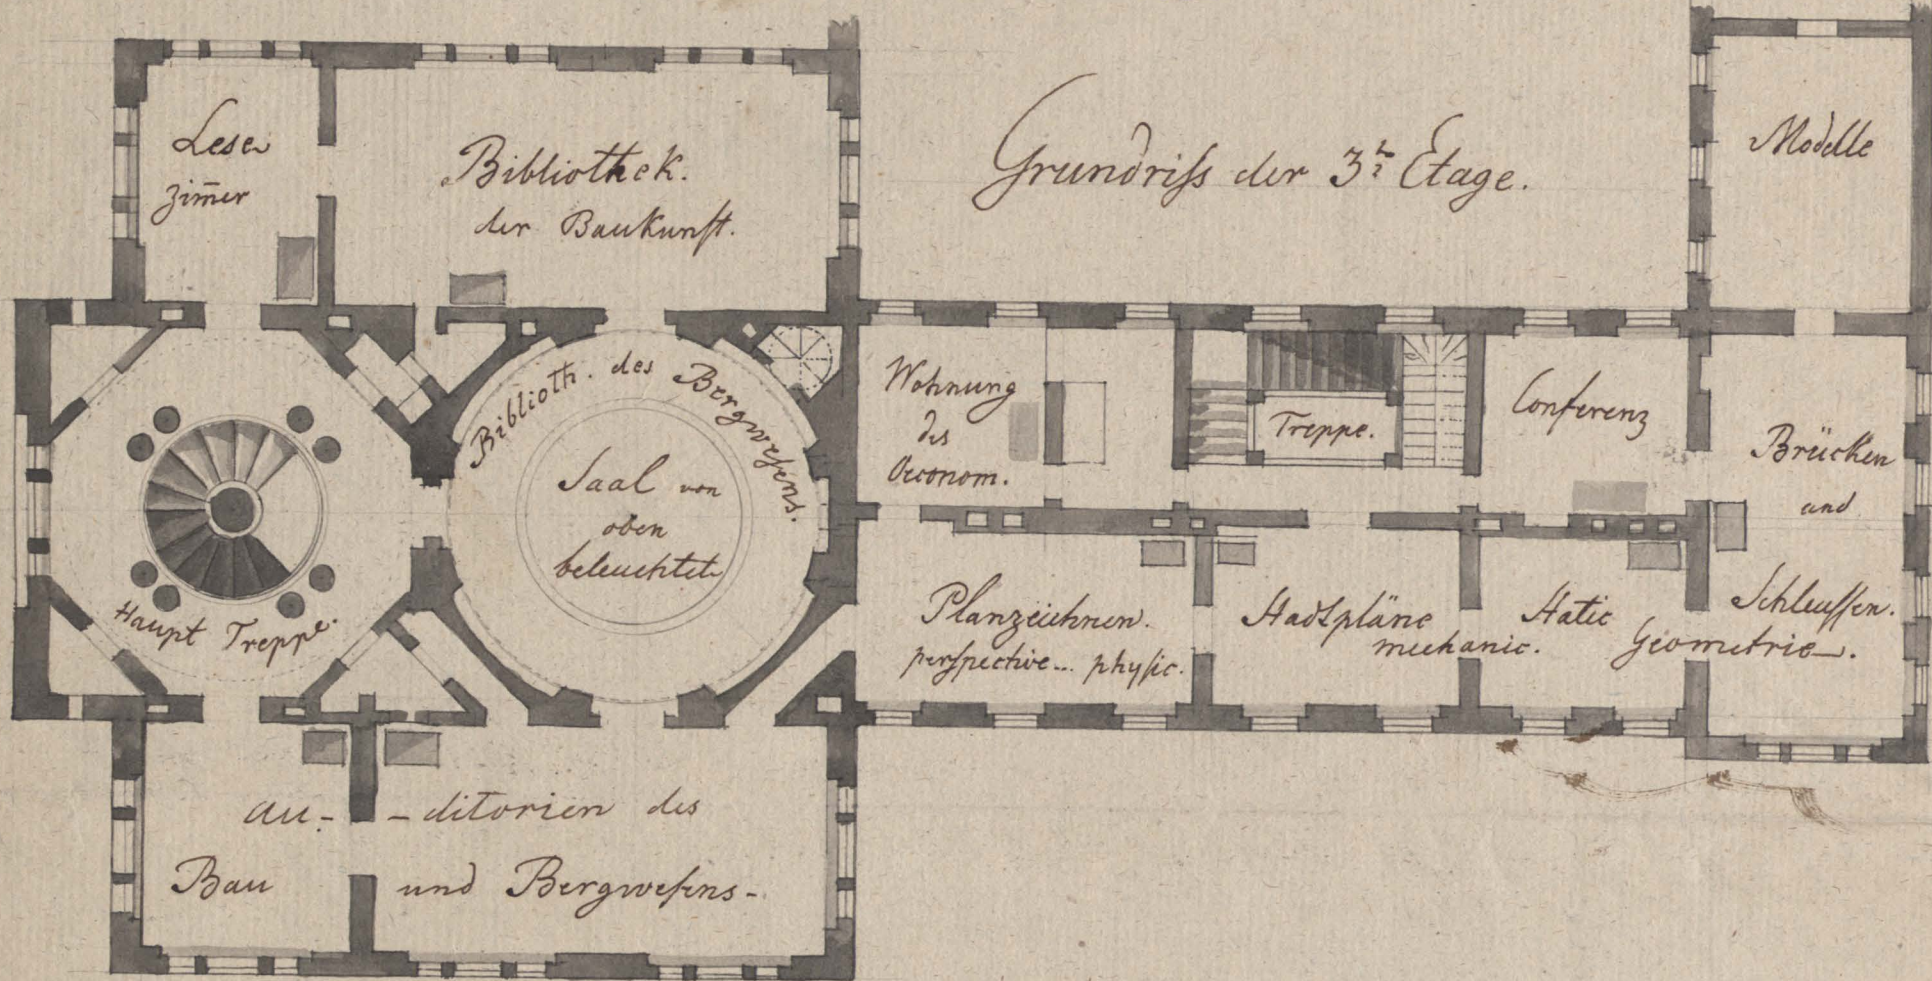 Grundriſs der 3ᵗ Etage.
Lese
Zim̄er
Bibliothek.
der Baukunſt.
Modelle
Biblioth. des Bergweſens.
Saal von
oben
beleuchtet
Haupt Treppe.
Wohnung
des
Oeconom.
Treppe.
Conferenz
Brücken
und
Schleuſſen.
Planzeichnen.
perſpective... phyſic.
Stadtpläne
mechanic.
Static
Geometrie.
Au- -ditorien des
Bau und Bergweſens-